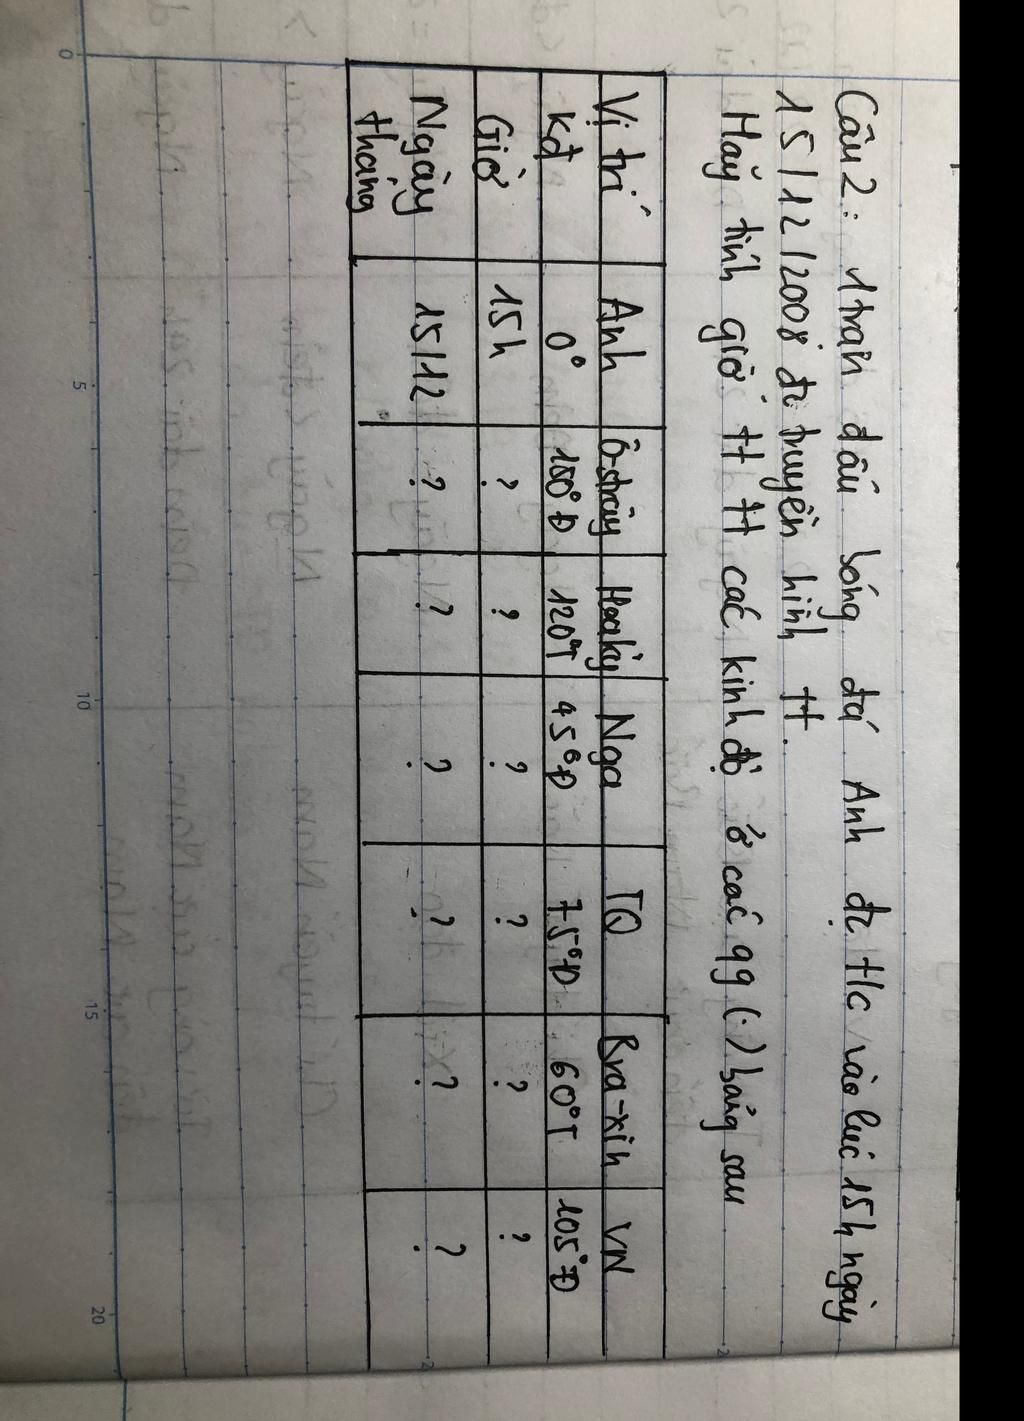 Câu 2: 1 trận đấu bóng đá Anh đc t/c vào lúc 15h ngày
15/12/2008 đc truyền hình tt.
Hãy tính giờ tt tt các kinh độ ở các qg (.) bảng sau
Vị trí Anh Ô-xtrây Hoa kỳ Nga TQ Bra-xin VN
Kđ 0° 150°Đ 120°T 45°Đ 75°Đ 60°T 105°Đ
Giờ 15h ? ? ? ? ? ?
Ngày 15/12 ? ? ? ? ? ?
tháng
0 5 10 15 20